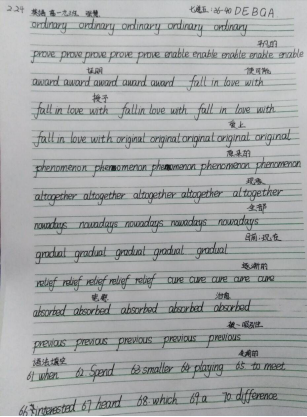 2.24 英语 高一 七选五: 36-40 DEBGA
ordinary ordinary ordinary ordinary ordinary
平凡的
prove prove prove prove prove enable enable enable enable
证明 使可能
award award award award award fall in love with
授予
fall in love with fall in love with fall in love with
爱上
fall in love with original original original original original
原来的
phenomenon phenomenon phenomenon phenomenon phenomenon
现象
altogether altogether altogether altogether altogether
全部
nowadays nowadays nowadays nowadays nowadays
目前,现在
gradual gradual gradual gradual gradual
逐渐的
relief relief relief relief relief cure cure cure cure cure
宽慰 治愈
absorbed absorbed absorbed absorbed absorbed
被…吸引住
previous previous previous previous previous
先前的
语法填空
61 when 62 Spend 63 smaller 64 playing 65 to meet
66 interested 67 heard 68 which 69 a 70 difference